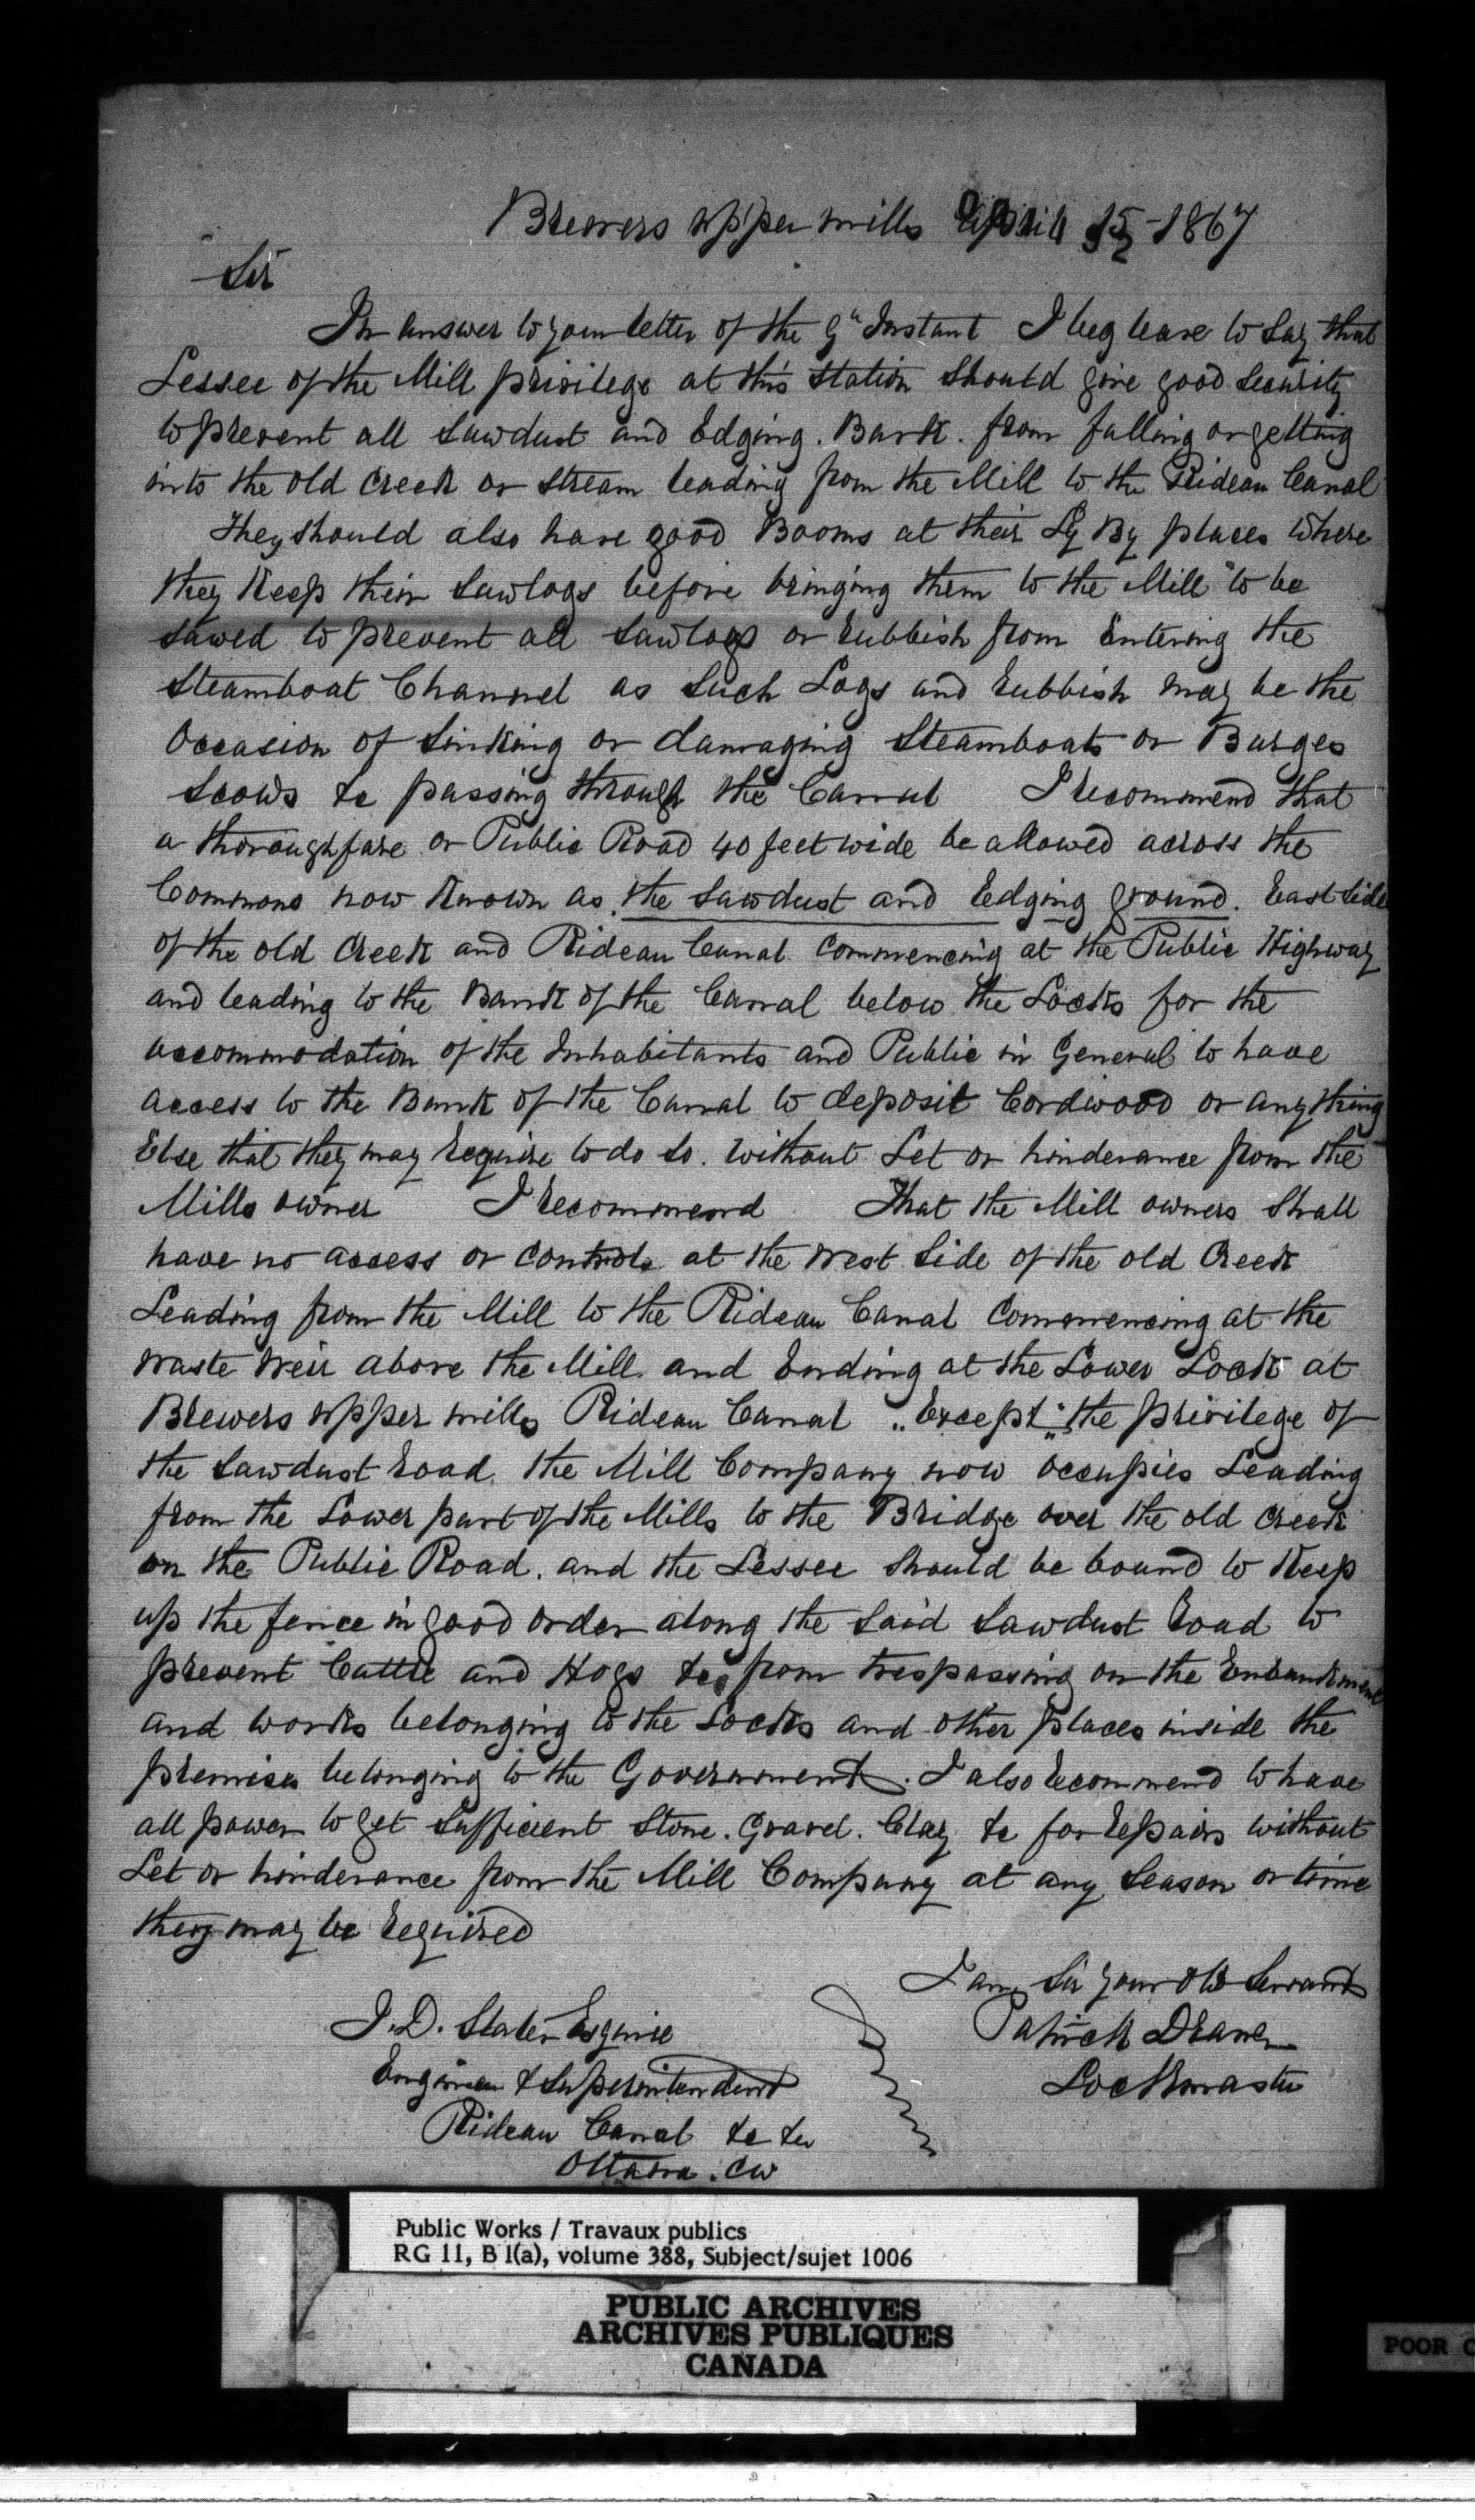 Brewers upper mills April 15th 1867
Sir
In answer to your letter of the 9th Instant I beg leave to Say that
Lessee of the Mill privilege at this Station Should give good Security
to prevent all Sawdust and Edging. Bark. from falling or getting
into the old Creek or Stream leading from the Mill to the Rideau Canal
They should also have good Booms at their Ly By places where
they Keep their Sawlogs before bringing them to the Mill to be
Sawed to prevent all Sawlogs or rubbish from Entering the
Steamboat Channel as Such Logs and rubbish may be the
Occasion of Sinking or damaging Steamboats or Barges
Scows &c passing through the Canal I recommend that
a thoroughfare or Public Road 40 feet wide be allowed across the
Commons now Known as the Sawdust and Edging ground. East Side
of the old Creek and Rideau Canal Commencing at the Public Highway
and leading to the Bank of the Canal below the Locks for the
accommodation of the Inhabitants and Public in General to have
access to the Bank of the Canal to deposit Cordwood or anything
Else that they may require to do So. without Let or hinderance from the
Mills owner I recommend That the Mill owners Shall
have no access or control at the west Side of the old Creek
Leading from the Mill to the Rideau Canal Commencing at the
waste weir above the Mill and Ending at the Lower Lock at
Brewers upper mills Rideau Canal „Except" the privilege of
the Sawdust road the Mill Company now occupies Leading
from the Lower part of the Mills to the Bridge over the old Creek
on the Public Road. and the Lessee Should be bound to Keep
up the fence in good order along the Said Sawdust road to
prevent Cattle and Hogs &c from trespassing on the Embankment
and works belonging to the Locks and other places inside the
premises belonging to the Government. I also recommend to have
all power to get Sufficient Stone. Gravel. Clay &c for repairs without
Let or hinderance from the Mill Company at any Season or time
they may be required
I am Sir your Ob Servant
Patrick Deane
Lockmaster
J.D. Slater Esquire
Engineer & Superintendent
Rideau Canal &c &c
Ottawa. CW
Public Works / Travaux publics
RG 11, B 1(a), volume 388, Subject/sujet 1006
PUBLIC ARCHIVES
ARCHIVES PUBLIQUES
CANADA
POOR